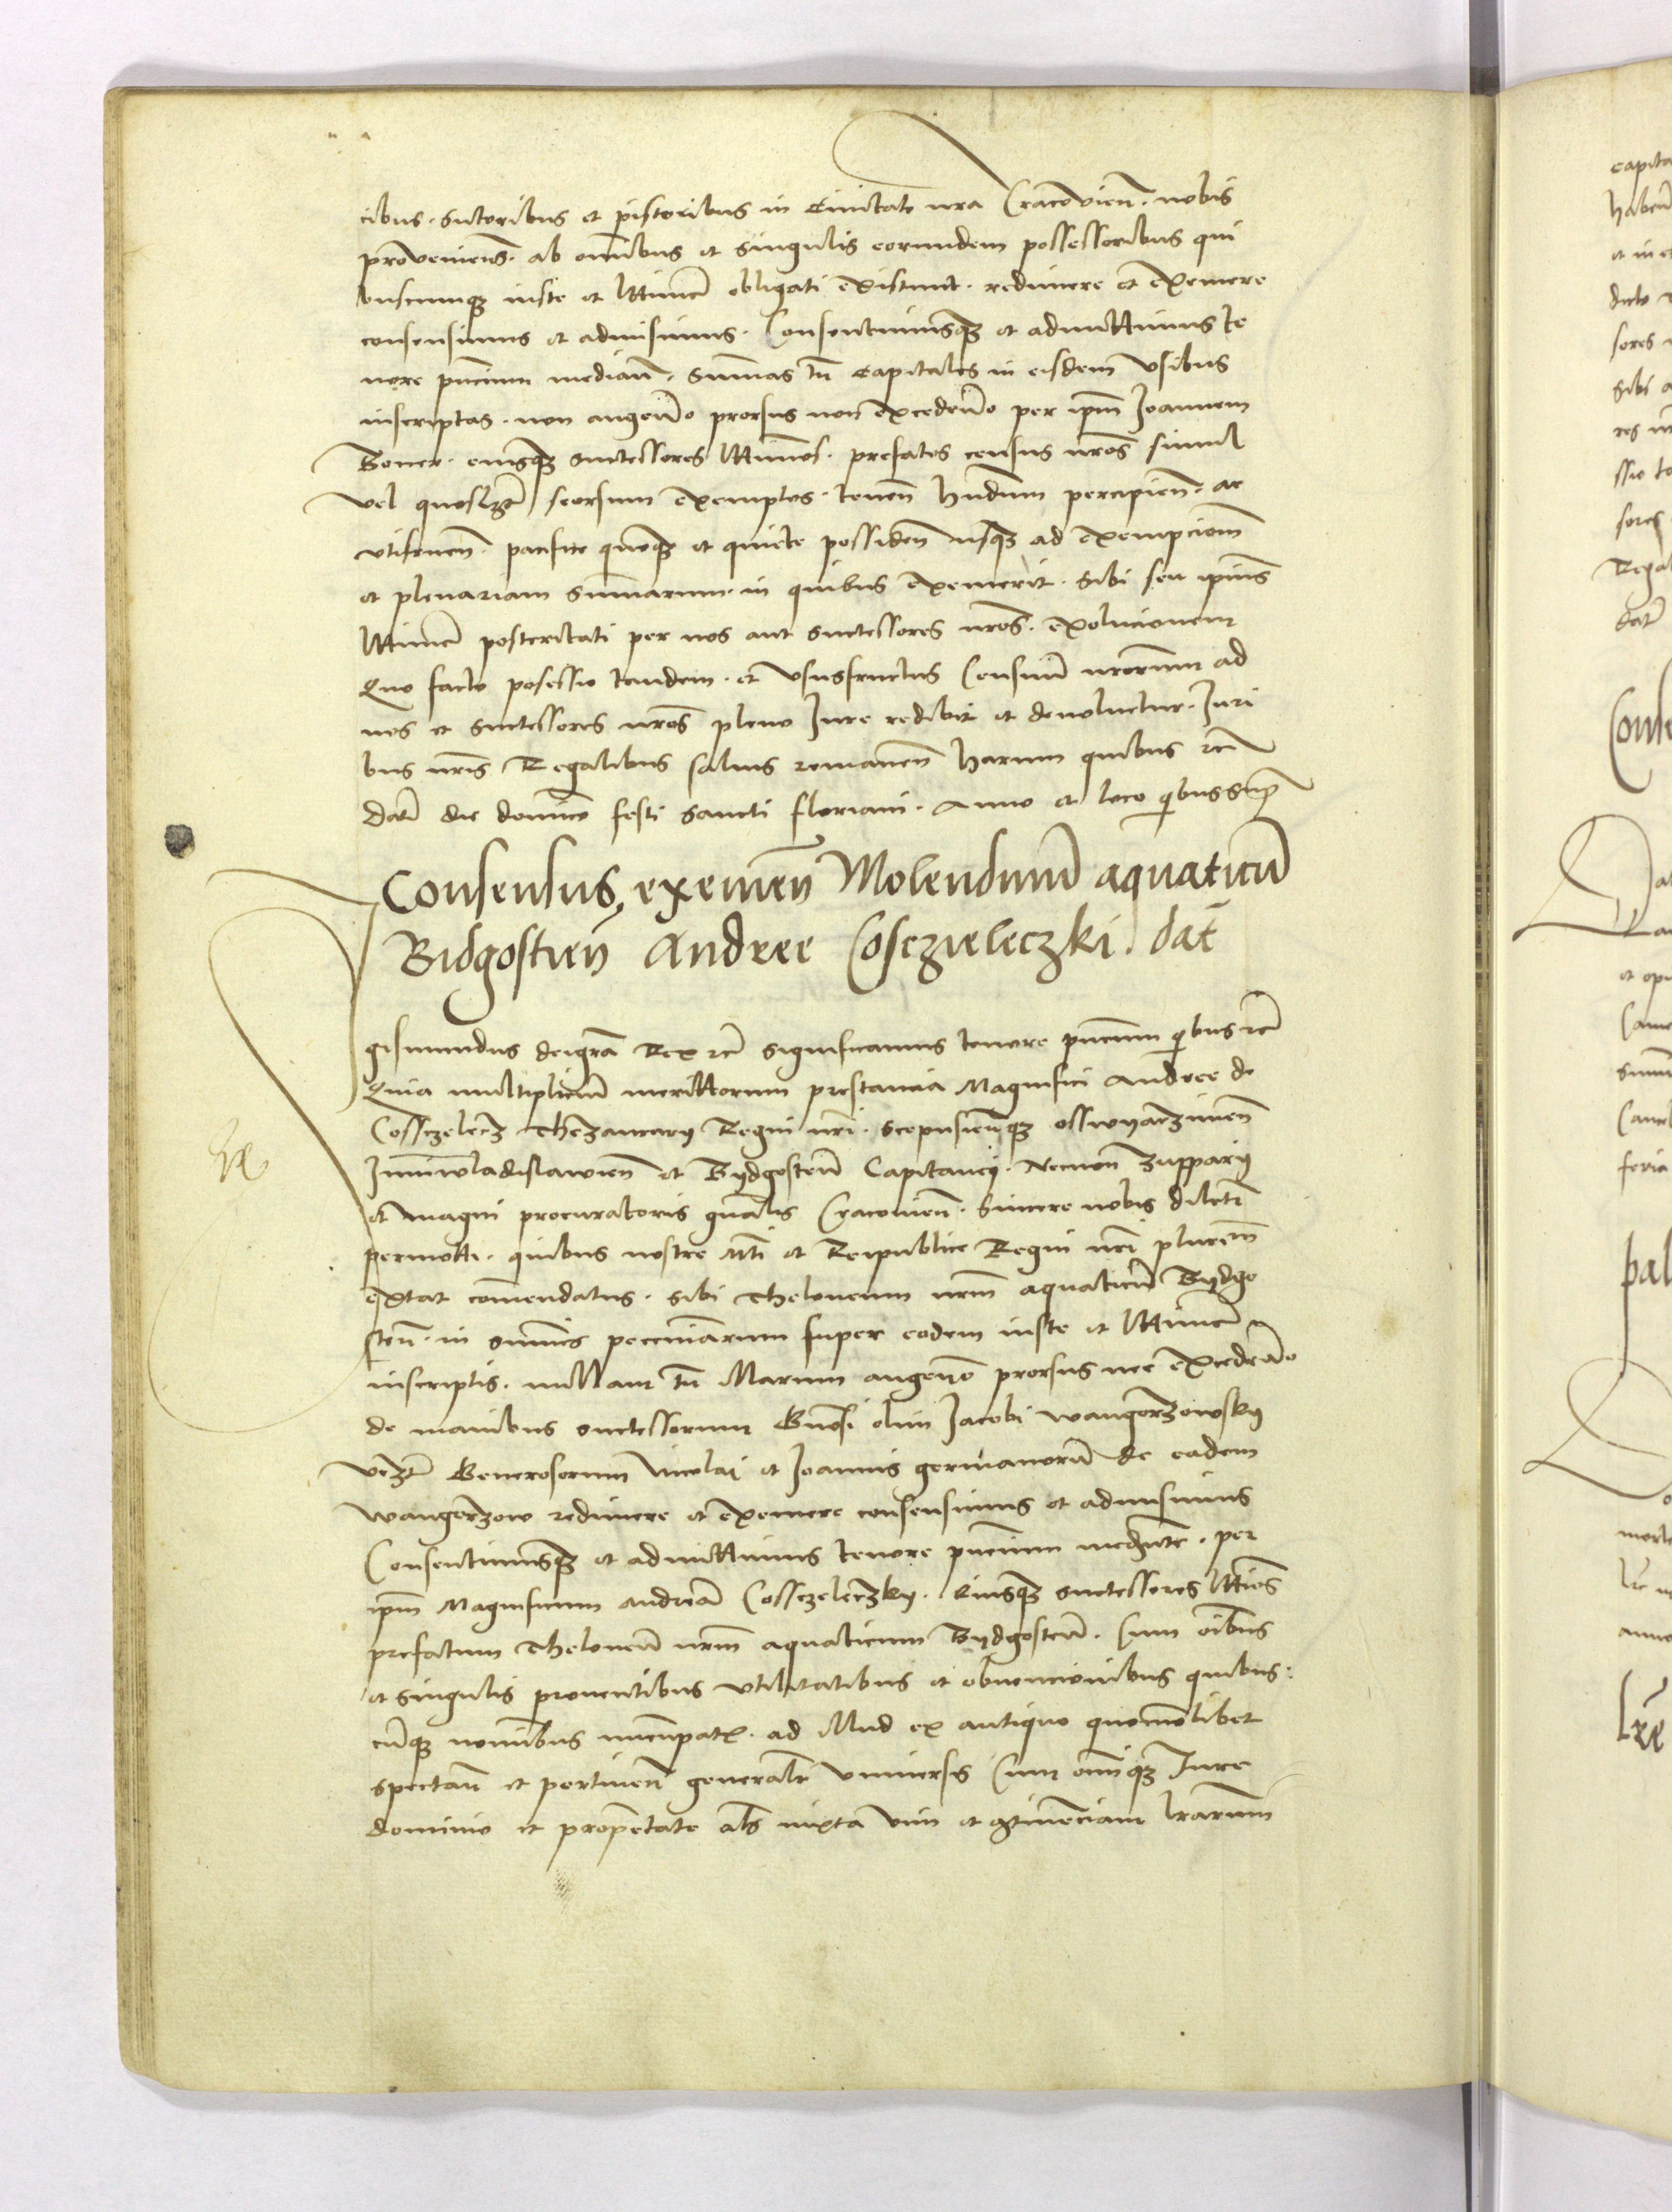 cibus. Sutoribus et pistoribus in Civitate nra Cracovien. nobis
provenien. ab omnibus et singulis eorundem possessoribus qui
buscumqz iuste et littime obligati existunt. redimere et exemere
consensimus et admisimus. Consentimusqz et admittimus te
nore pntium median. Summas tn Capitales in eisdem Usibus
inscriptas. non augendo prorsus non excedendo per ipm Joannem
Boner. eiusqz successores littimos. prefatos census nros simul
vel seorsum exemptos. tenen hndum percipien. ac
utifruen. pacifice quoqz et quiete possiden usqz ad exempcionem
et plenariam summarum. in quibus exemerit. Sibi seu ipius
littime posteritati per nos aut successores nros. exolucionem
Quo facto posessio tandem. et Ususfructus Censuum nrorum ad
nos et successores nros pleno Jure redibit et devoluetur. Juri
bus nris Regalibus salvis remanen harum quibus etc
Dat die dominico festi Sancti Floriani. Anno et loco quibus sup
Consensus, exemen Molendinum aquaticum
Bidgostien Andree Cosczieleczki. dat
gismundus dei gra Rex etc Significamus tenore pntium quibus etc
Quia multiplicium merittorum prestancia Magnifici Andree de
Cosczelecz Thezaurarij Regni nri. Scepusiensqz osswyaczimen
Juniwladislavien et Bydgostien Capitanei. Necnon zupparij
et magni procuratoris gnalis Cracovien. Sincere nobis dilecti
permotti. quibus nostre Mti et Reipublice Regni nri plurimum
extat comendatus. Sibi Theloneum nrm aquaticum Bydgo
stien. in summis pecuniarum super eodem iuste et littime
inscriptis. nullam tn illarum augendo prorsus nec excedendo
de manibus successorum Gnosi olim Jacobi wangorzewsky
Generosorum Nicolai et Joannis germanorum de eadem
wangorzow redimere et exemere consensimus et admisimus
Consentimusqz et admittimus tenore pntium mediante. per
ipm Magnificum andream Cosczeleczky. Eiusqz successores littimos
prefatum Theloneum nrm aquaticum Bydgostien. Cum oibus
et singulis proventibus utilitatibus et obvencionibus quibus:
cumqz nominibus nuncupatis. ad illud ex antiquo quomodolibet
spectan et pertinen generaliter universis Cum omniqz Jure
dominio et proprietate als iuxta vim et continenciam lrarum